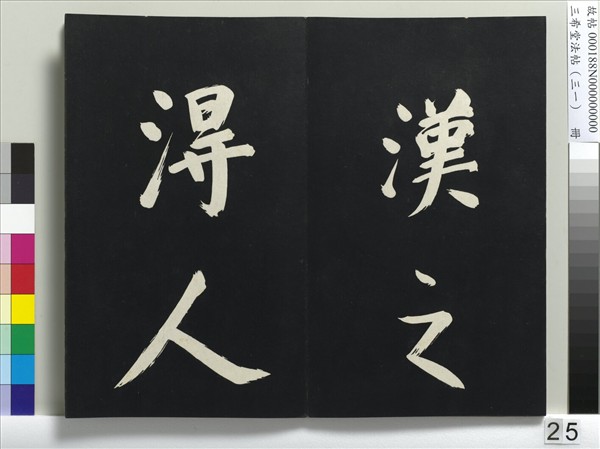 漢之
得人
故帖 000188N000000000
三希堂法帖（三一） 冊
25